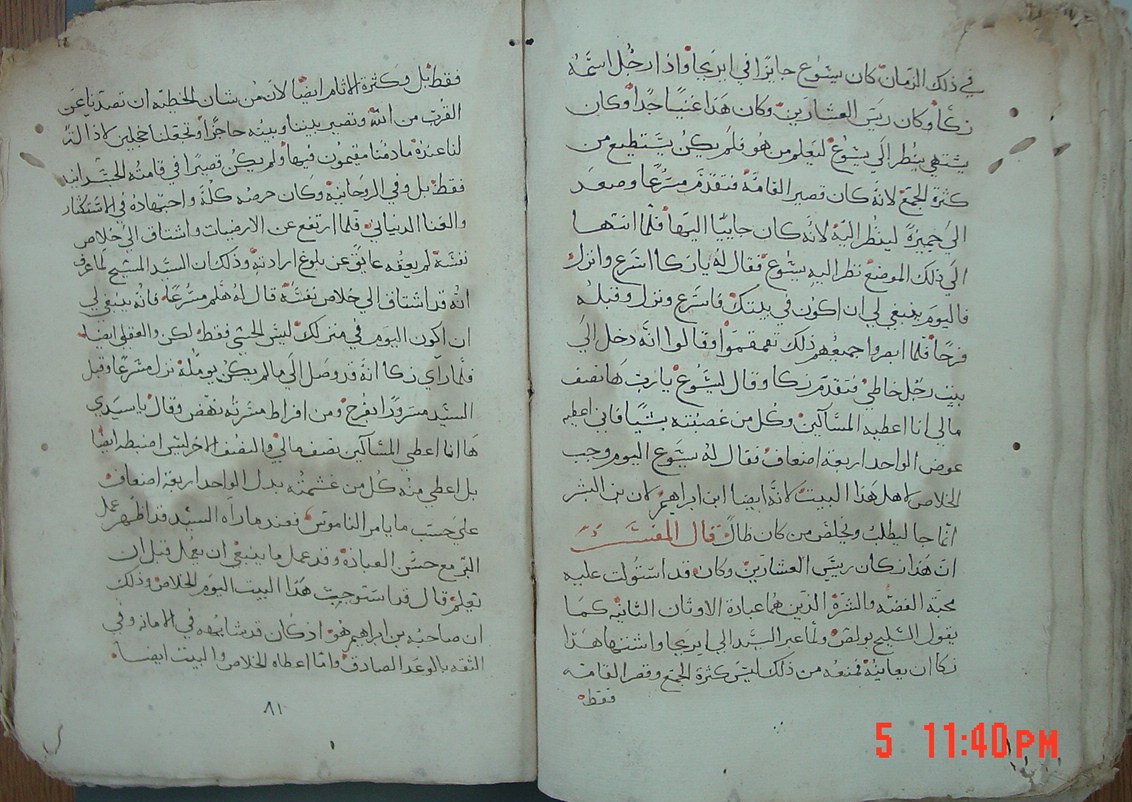 في ذلك الزمان كان يسوع جايزا في ايريحا واذا رجل اسمه
زكا وكان ريس العشارين وكان هذا غنيا جدا وكان
يشتهي ينظر الي يسوع ليعلم من هو فلم يكن يستطيع من
كثرة الجمع لانه كان قصير القامة فتقدم مسرعا وصعد
الي جميزة لينظر اليه لانه كان جاييا اليها فلما انتها
الي ذلك الموضع نظر اليه يسوع فقال له يا زكا اسرع وانزل
فاليوم ينبغي لي ان اكون في بيتك فاسرع ونزل وقبله
فرحا فلما ابصروا جميعهم ذلك تقمقموا وقالوا انه دخل الي
بيت رجل خاطي فتقدم زكا وقال ليسوع يا رب ها نصف
مالي انا اعطيه المساكين وكل من غصبته شيا فاني اعطيه
عوض الواحد اربعة اضعاف فقال له يسوع اليوم وجب
الخلاص لاهل هذا البيت لانه ايضا ابن ابراهيم لان بن البشر
انما جا ليطلب ويخلص من كان ضالا قال المفسر
ان هذا زكا كان رييس العشارين وكان قد استولت عليه
محبة الفضه والشره الذين هما عبادة الاوثان الثانيه كما
يقول السليح بولص ولما عبر السيد الي ايريحا واشتها هذا
زكا ان يعاينه فمنعه من ذلك ليس كثرة الجمع وقصر القامه
فقط
فقط بل وكثرة الاثام ايضا لان من شان الخطيه ان تصدنا عن
القرب من الله وتصير بيننا وبينه حاجزا وتجعلنا مخجلين لاذالة
لنا عنده ما دمنا مقيمون فيها ولم يكن قصيرا في قامته الجسدانيه
فقط بل وفي الروحانيه وكان حرصه كله واجتهاده في الاستكثار
والقنا الدنياني فلما ارتفع عن الارضيات واشتاق الي خلاص
نفسه لم يعقه عايق عن بلوغ ارادته وذلك ان السيد المسيح لما عرف
انه قد اشتاق الي خلاص نفسه قال له هلم مسرعا فانه ينبغي لي
ان اكون اليوم في منزلك ليس الحسي فقط لكن والعقلي ايضا
فلما راي زكا انه قد وصل الي ما لم يكن يومله نزل مسرعا وقبل
السيد مسرورا بفرح ومن افراط مسرته نهض وقال يا سيدي
ها انا اعطي المساكين نصف مالي والنصف الاخر ليس اضبطه ايضا
بل اعطي منه كل من غشمته بدل الواحد اربعة اضعاف
علي حسب ما يامر الناموس فعند ما راه السيد قد اظهر عمل
البر مع حسن العباده وقد عمل ما ينبغي ان يعمل قبل ان
تعلم قال قد استوجب هذا البيت اليوم الخلاص وذلك
ان صاحبه بن ابراهيم هو اذ كان قد شابهه في الامانه وفي
الثقه بالوعد الصادق وانما اعطاه الخلاص والبيت ايضا
٨١
5 11:40PM